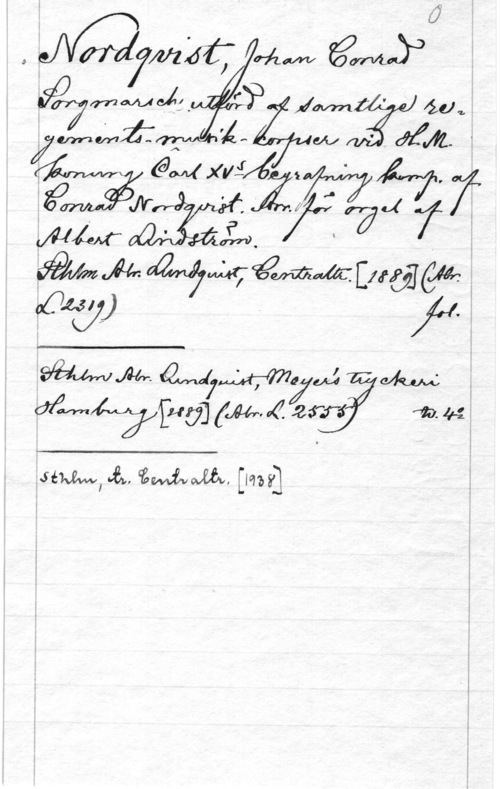 O
Nordqvist, Johan Conrad
Sorgmarsch utförd af samtlige re-
gements-musik-corpser vid H.M.
konung Carl XVs begrafning komp. af
Conrad Nordqvist. Arr. för orgel af
Albert Lindström.
Sthlm Abr. Lundquist, Centraltr. [1889] (Abr.
L. 2319) fol.
Sthlm Abr. Lundquist, Meyer's tryckeri
Hamburg [1889] (Abr. L. 2555) tv. 4º
Sthlm, tr. Centraltr. [1938]